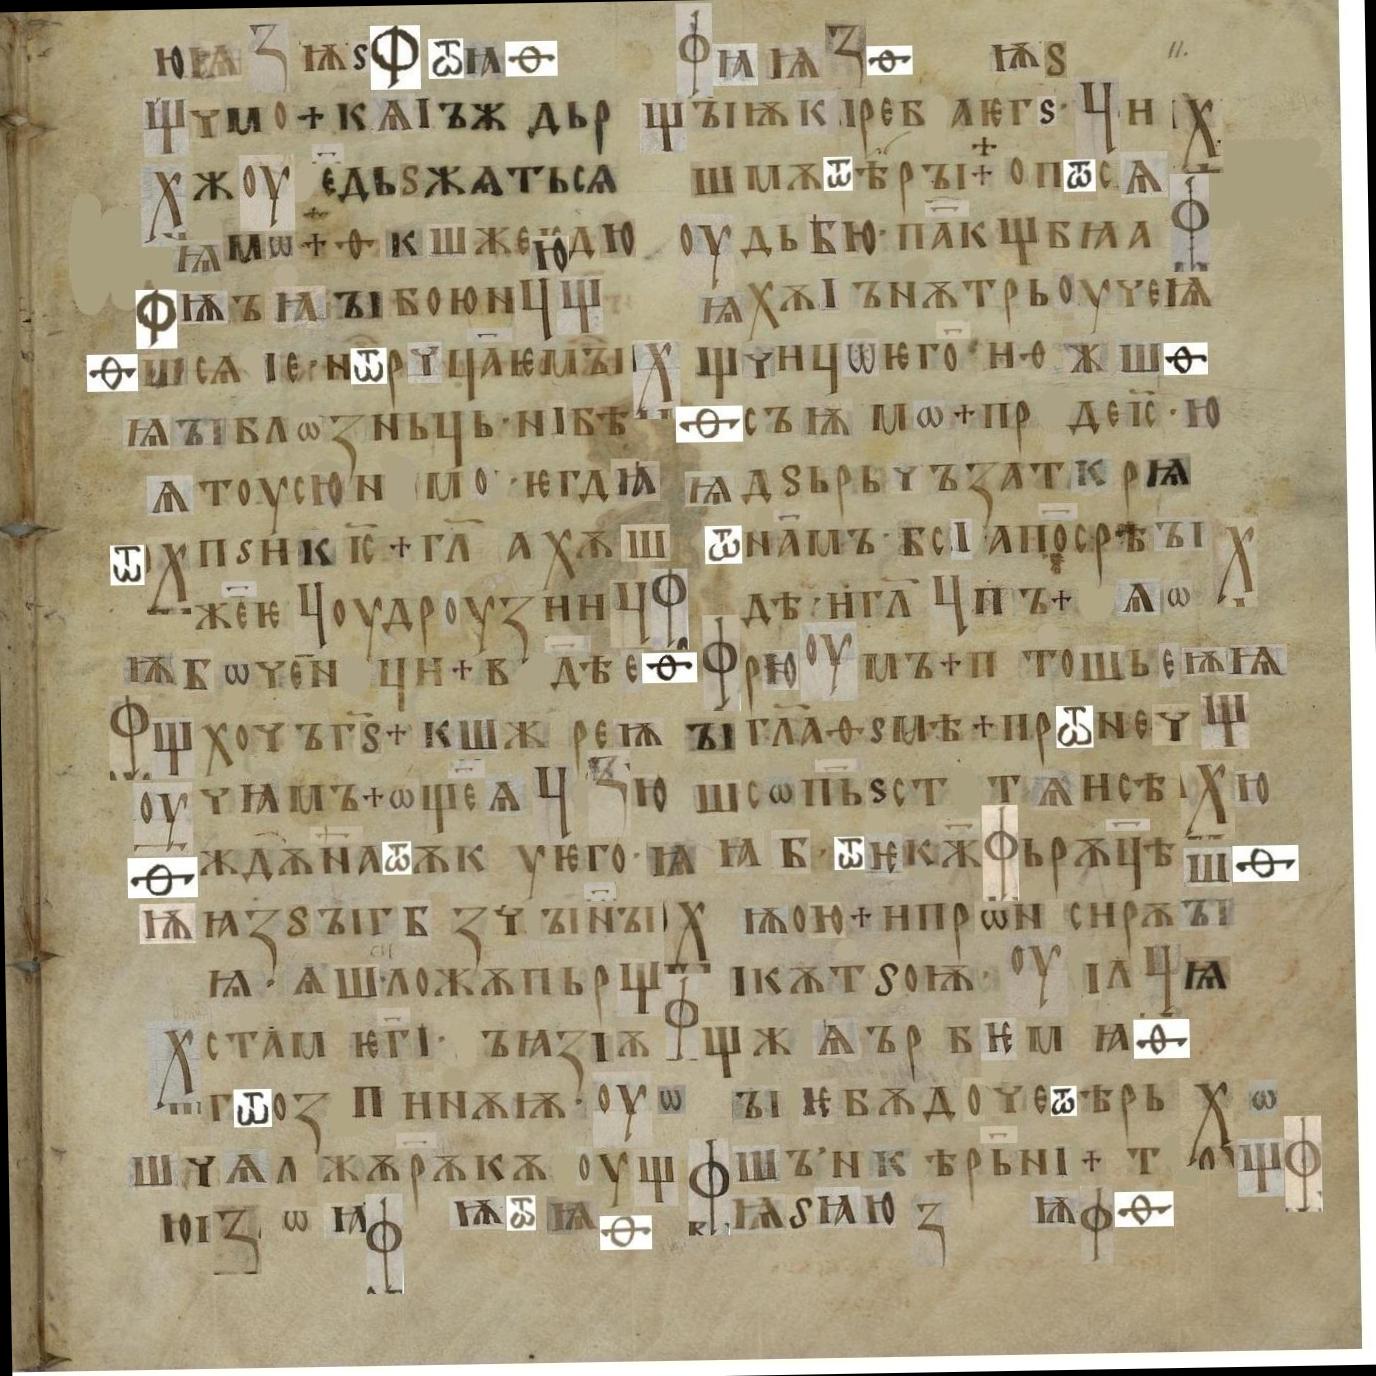 юѩꙁѭѕфѿꙗѳ фꙗѩꙁѳ ѭѕ
ѱүмо+кѧіъж дьр ѱъіѭкіреб аѥгѕ· чн х
хжоу едьѕжѧтьсѧ шмѫѿѣръі+опѿсѧ
ѩмѡ+ѳкшжеюдю оудьбю·пакѱбꙗа ф
фѭъꙗъібоюнчѱ ѩхѫіънѫтрьоуүеѩ
ѳшсѧ іе·нѿрүцаѥмъіх ѱүнчѡѥго·н·ѳжшѳ
ѩъіблѡꙁньць·нібѣ ѳсъѩмѡ+пр деіс·ю
ѧтоусюн мо·ѥгдꙗ ѩдѕьрьүъꙁаткрѩ
ѿхпѕнкіс+гл ахѫш ѿнамъ·бсіапосрѣъіх
жеѥчоудроуꙁннчф дѣ·нглчпъ+ ѧѡ
ѭбѡүен цн+в дѣеѳ фрюоумъ+п тощьеѭѩ
фѱхоүъгѕ+кшж реѭ ъігла·ѳ·ѕмѣ+прѿнеүѱ
оуүꙗмъ+ѡѱеѧчꙁю шсѡпьѕст тѧнсѣхю
ѳждѫнаѿѫк уѥго·ѩ ꙗб·ѿѥкжфьрѫцѣшѳ
ѭꙗꙁѕъігбꙁүъінъіх ѭою+нпрѡнснрѫъі
ѩ·ѧшложѫпьрѱ ікѫтѕоѭ·оуілчѩ
хстамѥгі·ъꙗꙁіѫф ѱжѧърбѥмꙗѳ
гѿоꙁпннѫѭ·оуѡ ъіѥбѫдоүеѿѣрьхѡ
шүѧлжѫрѫкѫоуѱ фшъ'нкѣрьні+тлѱф
юіꙁѡꙗф ѭѿѩѳ ѩѕꙗюꙁ ѭфѳ